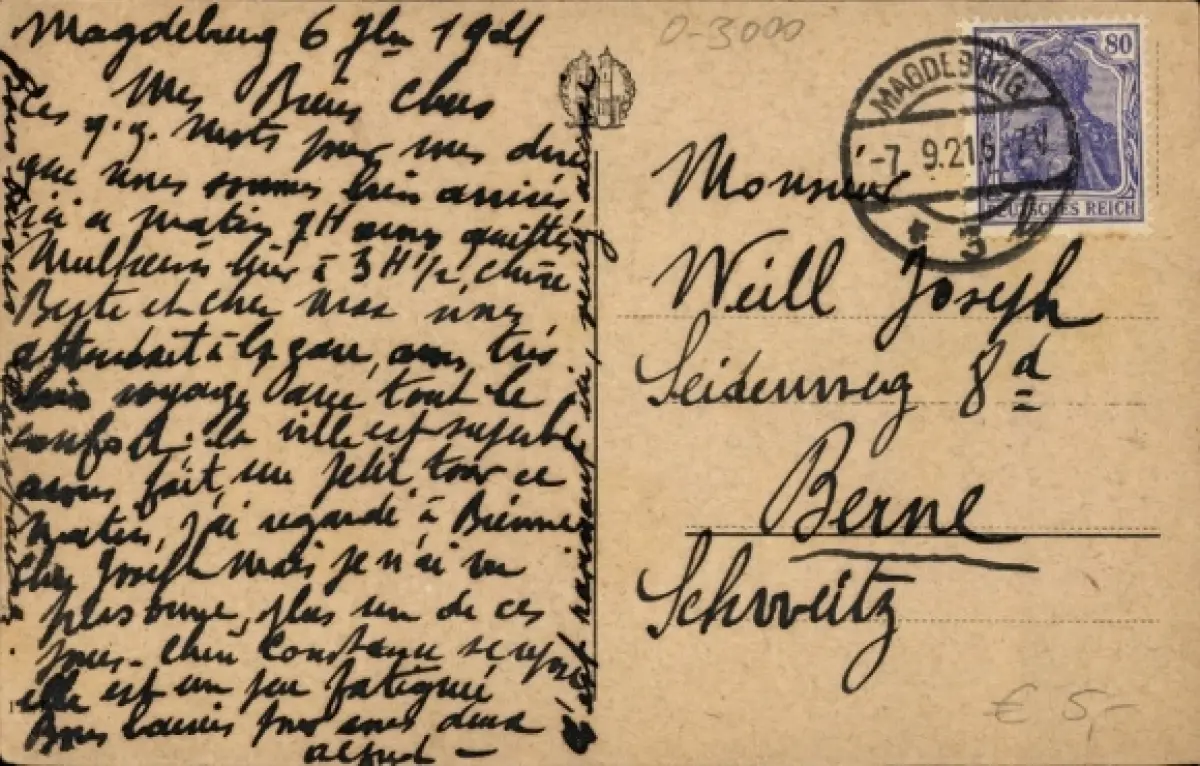 Magdeburg 6 1921
Mes Biens Chers
Ces q.q. mots pour vous dire
que nous sommes bien arrivés
ici a matin 9H avons quitté
Mulheim hier à 3 H 1/2, chère
et cher Max nous
attendait à la gare, avons très
bien voyagé avec tout le
confort. la ville est superbe
avons fait un petit tour ce
matin, j'ai regardé à Bienne
chez Joseph mais je n'ai vu
personne, plus un de ces
jours. Chère Constance se repose
elle est un peu fatiguée
Bons baisers pour vous deux
Alfred
0-3000
MAGDEBURG
-7.9.21.
* 3
80 80
DEUTSCHES REICH
Monsieur
Weill Joseph
Seidenweg 8d
Berne
Schweitz
€ 5,-